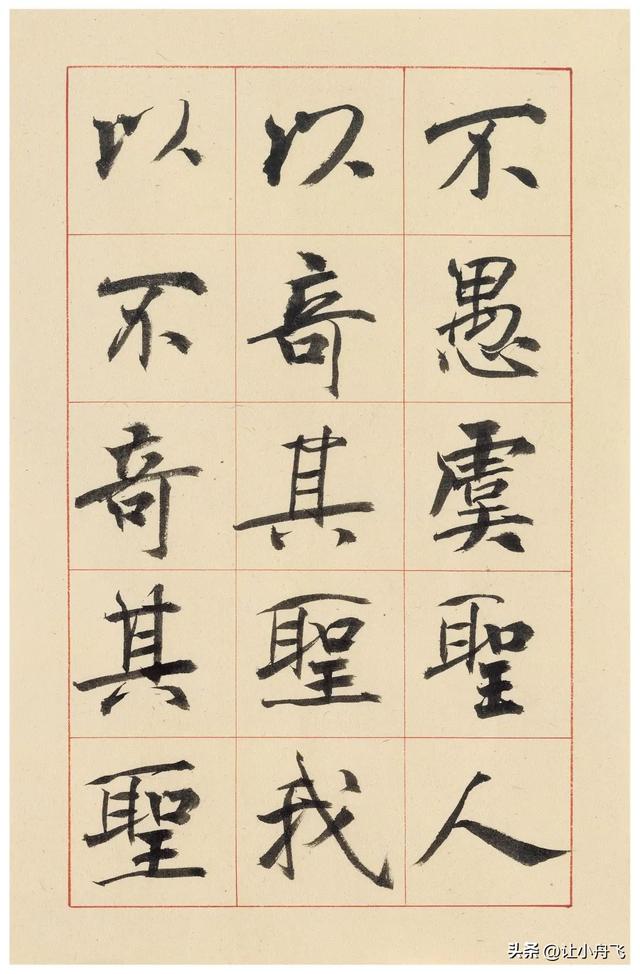 不愚虞聖人
以奇其聖我
以不奇其聖
头条 @让小舟飞